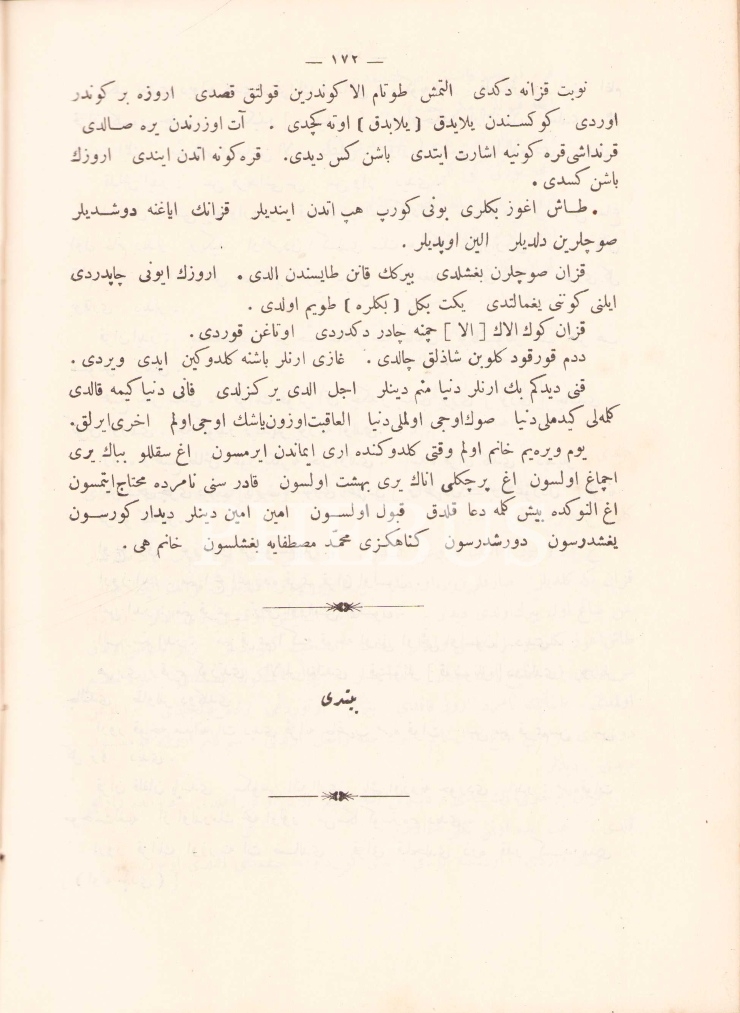 — ١٧٢ —
نوبت قزانه دكدی التمش طوتام الا كوندرین قولتق قصدی اروزه بر كوندر
اوردی كوكسندن یلابدق (یلابدق) اوته كچدی . آت اوزرندن یره صالدی
قرنداشی قره كونیه اشارت ایتدی باشن كس دیدی. قره كونه اتدن ایندی اروزك
باشن كسدی .
. طاش اغوز بكلری بونی كورب هپ اتدن ایندیلر قزانك ایاغنه دوشدیلر
صوچلرین دلدیلر الین اوپدیلر .
قزان صوچلرن بغشلدی بیركك قانن طایسندن الدی . اروزك ایونی چاپدردی
ایلنی كونی یغمالتدی یكت بكل (بكلره) طویم اولدی .
قزان كوك الاك [ الا ] چمنه چادر دكدردی اوتاغن قوردی .
ددم قورقود كلوبن شاذلق چالدی . غازی ارنلر باشنه كلدوكین ایدی ویردی .
قنی دیدكم بك ارنلر دنیا منم دینلر اجل الدی یر كزلدی فانی دنیا كیمه قالدی
كلملی كیدملی دنیا صوك اوجی اولملی دنیا العاقبت اوزون یاشك اوجی اولم اخری ایرلق.
یوم ویره یم خانم اولم وقتی كلدوكنده اری ایماندن ایرمسون اغ سقللو بباك یری
اجماغ اولسون اغ پرچكلی اناك یری بهشت اولسون قادر سنی نامرده محتاج ایتمسون
اغ النوكده بیش كلمه دعا قلدق قبول اولسون امین امین دینلر دیدار كورسون
یغشدرسون دورشدرسون كناهكزی محمّد مصطفایه بغشلسون خانم هی .
بیتدی